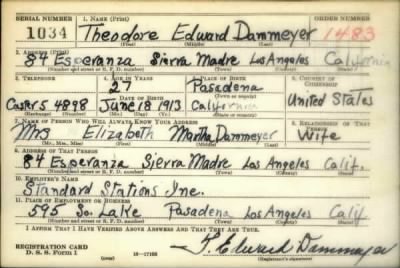 SERIAL NUMBER 1. NAME (Print) ORDER NUMBER
1034 Theodore Edward Dammeyer 1483
(First) (Middle) (Last)
2. ADDRESS (Print)
84 Esperanza Sierra Madre Los Angeles California
(Number and street or R. F. D. number) (Town) (County) (State)
3. TELEPHONE 4. AGE IN YEARS 5. PLACE OF BIRTH 6. COUNTRY OF CITIZENSHIP
27 Pasadena
DATE OF BIRTH
Custer 5 4898 June 18 1913 California United States
7. NAME OF PERSON WHO WILL ALWAYS KNOW YOUR ADDRESS 8. RELATIONSHIP OF THAT PERSON
Mrs Elizabeth Martha Dammeyer Wife
(Mr., Mrs., Miss) (First) (Middle) (Last)
9. ADDRESS OF THAT PERSON
84 Esperanza Sierra Madre Los Angeles Calif.
(Number and street or R. F. D. number) (Town) (County) (State)
10. EMPLOYER'S NAME
Standard Stations Inc.
11. PLACE OF EMPLOYMENT OR BUSINESS
595 So. Lake Pasadena Los Angeles Calif
(Number and street or R. F. D. number) (Town) (County) (State)
I AFFIRM THAT I HAVE VERIFIED ABOVE ANSWERS AND THAT THEY ARE TRUE.
REGISTRATION CARD
D. S. S. Form 1 16—17105 T. Edward Dammeyer